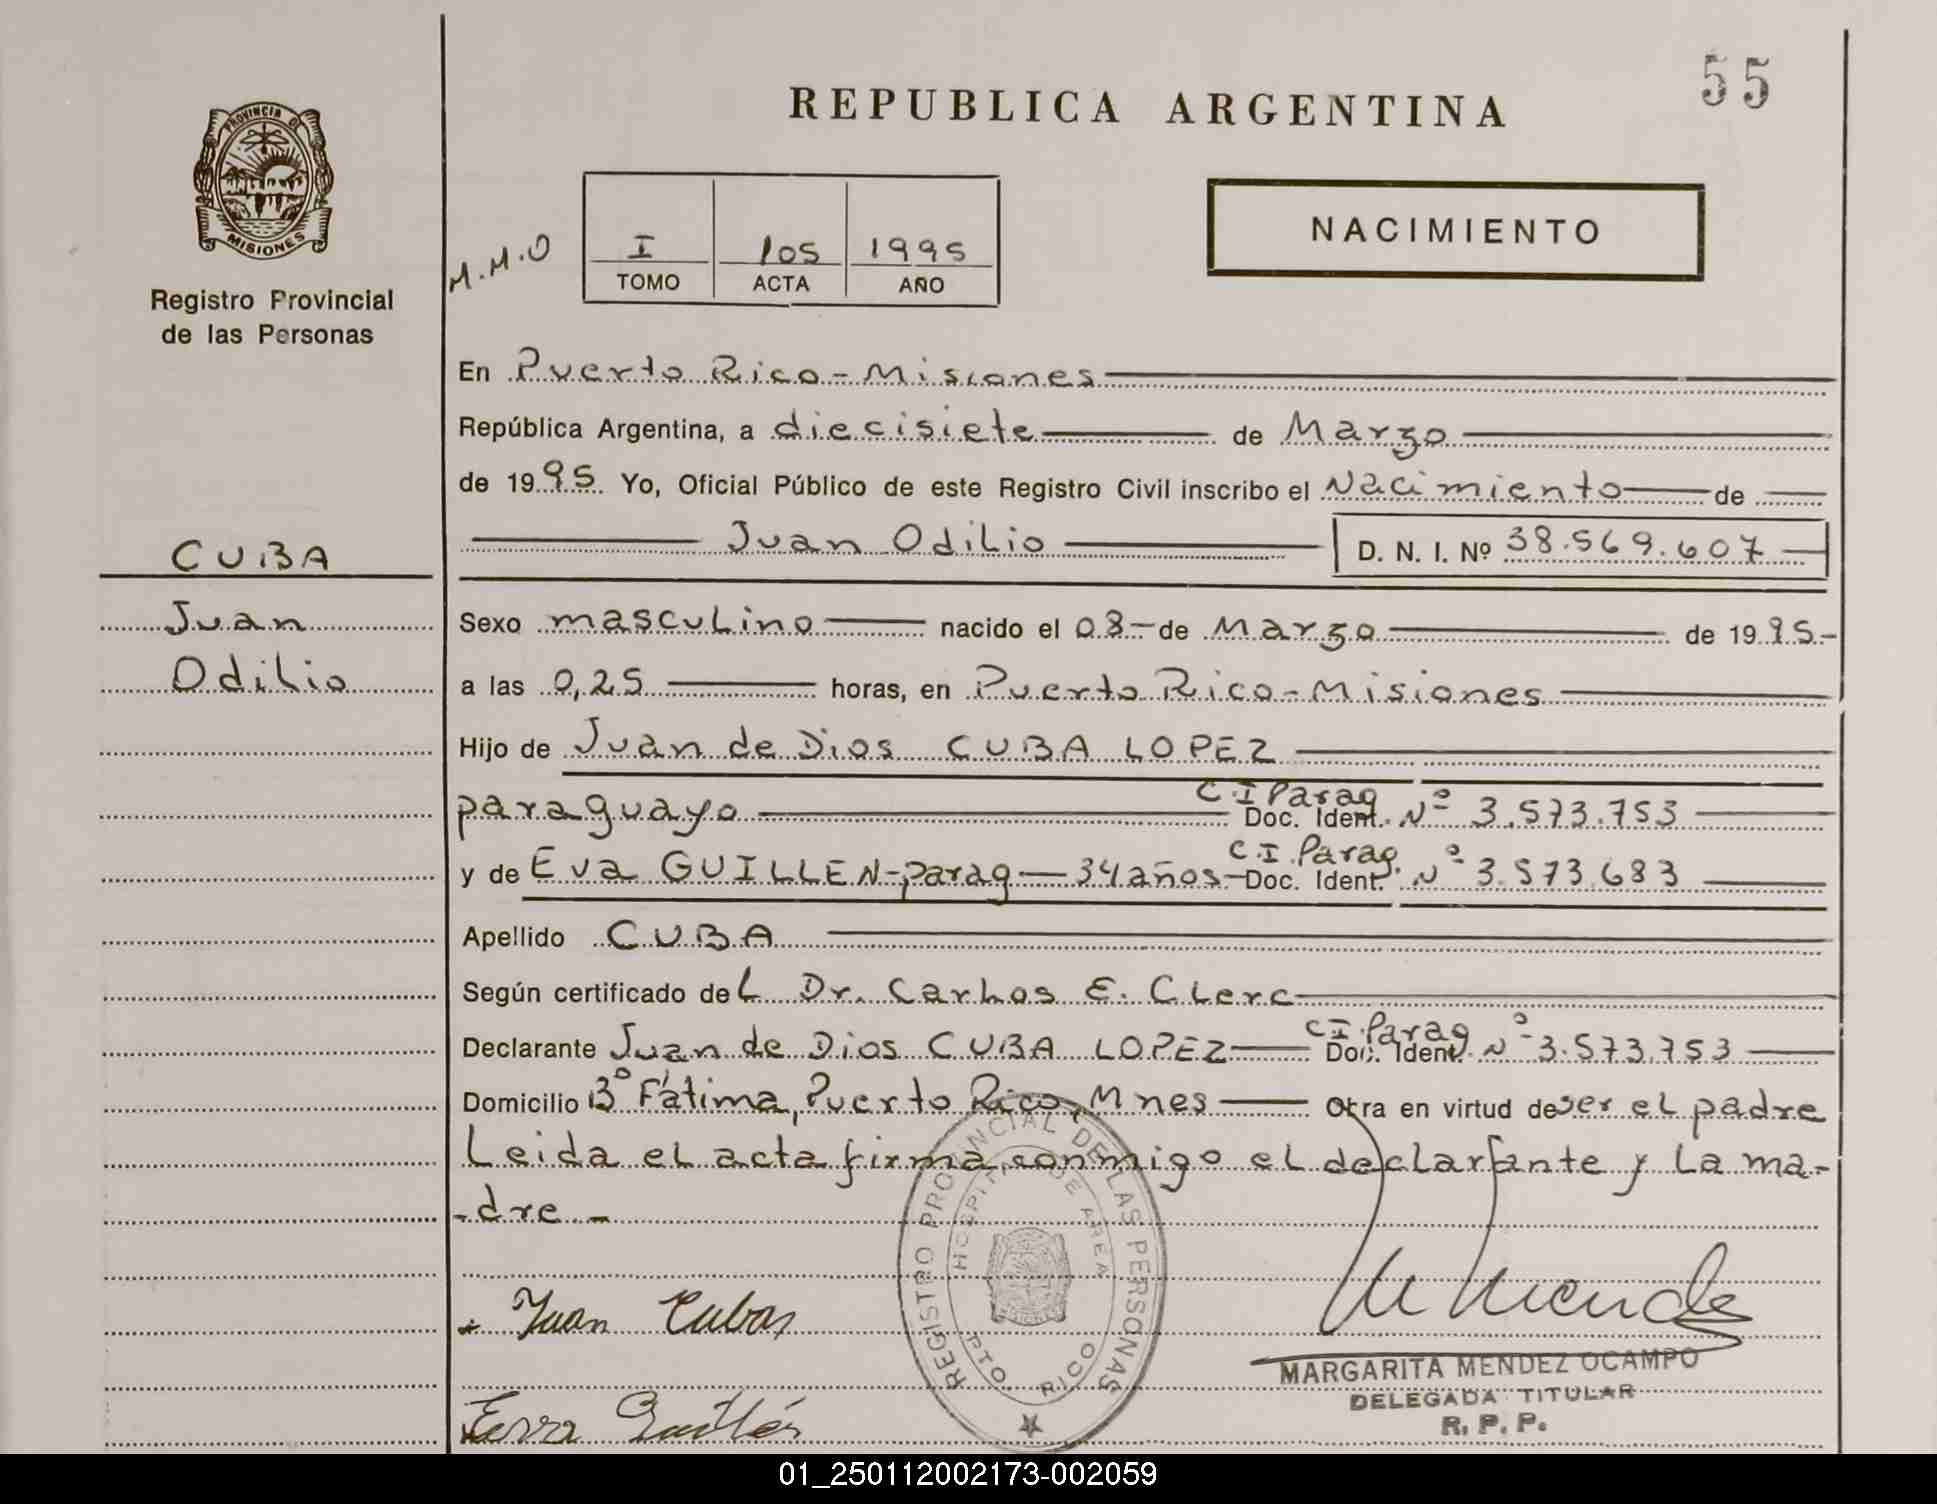 55
REPUBLICA ARGENTINA
PROVINCIA DE
MISIONES
Registro Provincial
de las Personas
M.M.O
I 105 1995
TOMO ACTA AÑO
NACIMIENTO
En Puerto Rico - Misiones
República Argentina, a diecisiete de Marzo
de 1995. Yo, Oficial Público de este Registro Civil inscribo el Nacimiento de
Juan Odilio D. N. I. Nº 38.569.607
CUBA
Juan
Odilio
Sexo masculino nacido el 08 - de Marzo de 1995.-
a las 0,25 horas, en Puerto Rico - Misiones
Hijo de Juan de Dios CUBA LOPEZ
paraguayo C.I Parag Doc. Ident. Nº 3.573.753
y de Eva GUILLEN - parag — 34 años - C.I. Parag. Doc. Ident. Nº 3.573.683
Apellido CUBA
Según certificado del Dr. Carlos E. Clerc
Declarante Juan de Dios CUBA LOPEZ C.I. Parag Doc. Ident. Nº 3.573.753
Domicilio Bº Fátima, Puerto Rico, Mnes Obra en virtud de ser el padre
Leida el acta firma conmigo el declarante y la ma-
-dre.-
REGISTRO PROVINCIAL DE LAS PERSONAS
HOSPITAL DE AREA
PTO. RICO
Juan Cubas
M Mendez
MARGARITA MENDEZ OCAMPO
DELEGADA TITULAR
R. P. P.
Evva Guillén
01_250112002173-002059